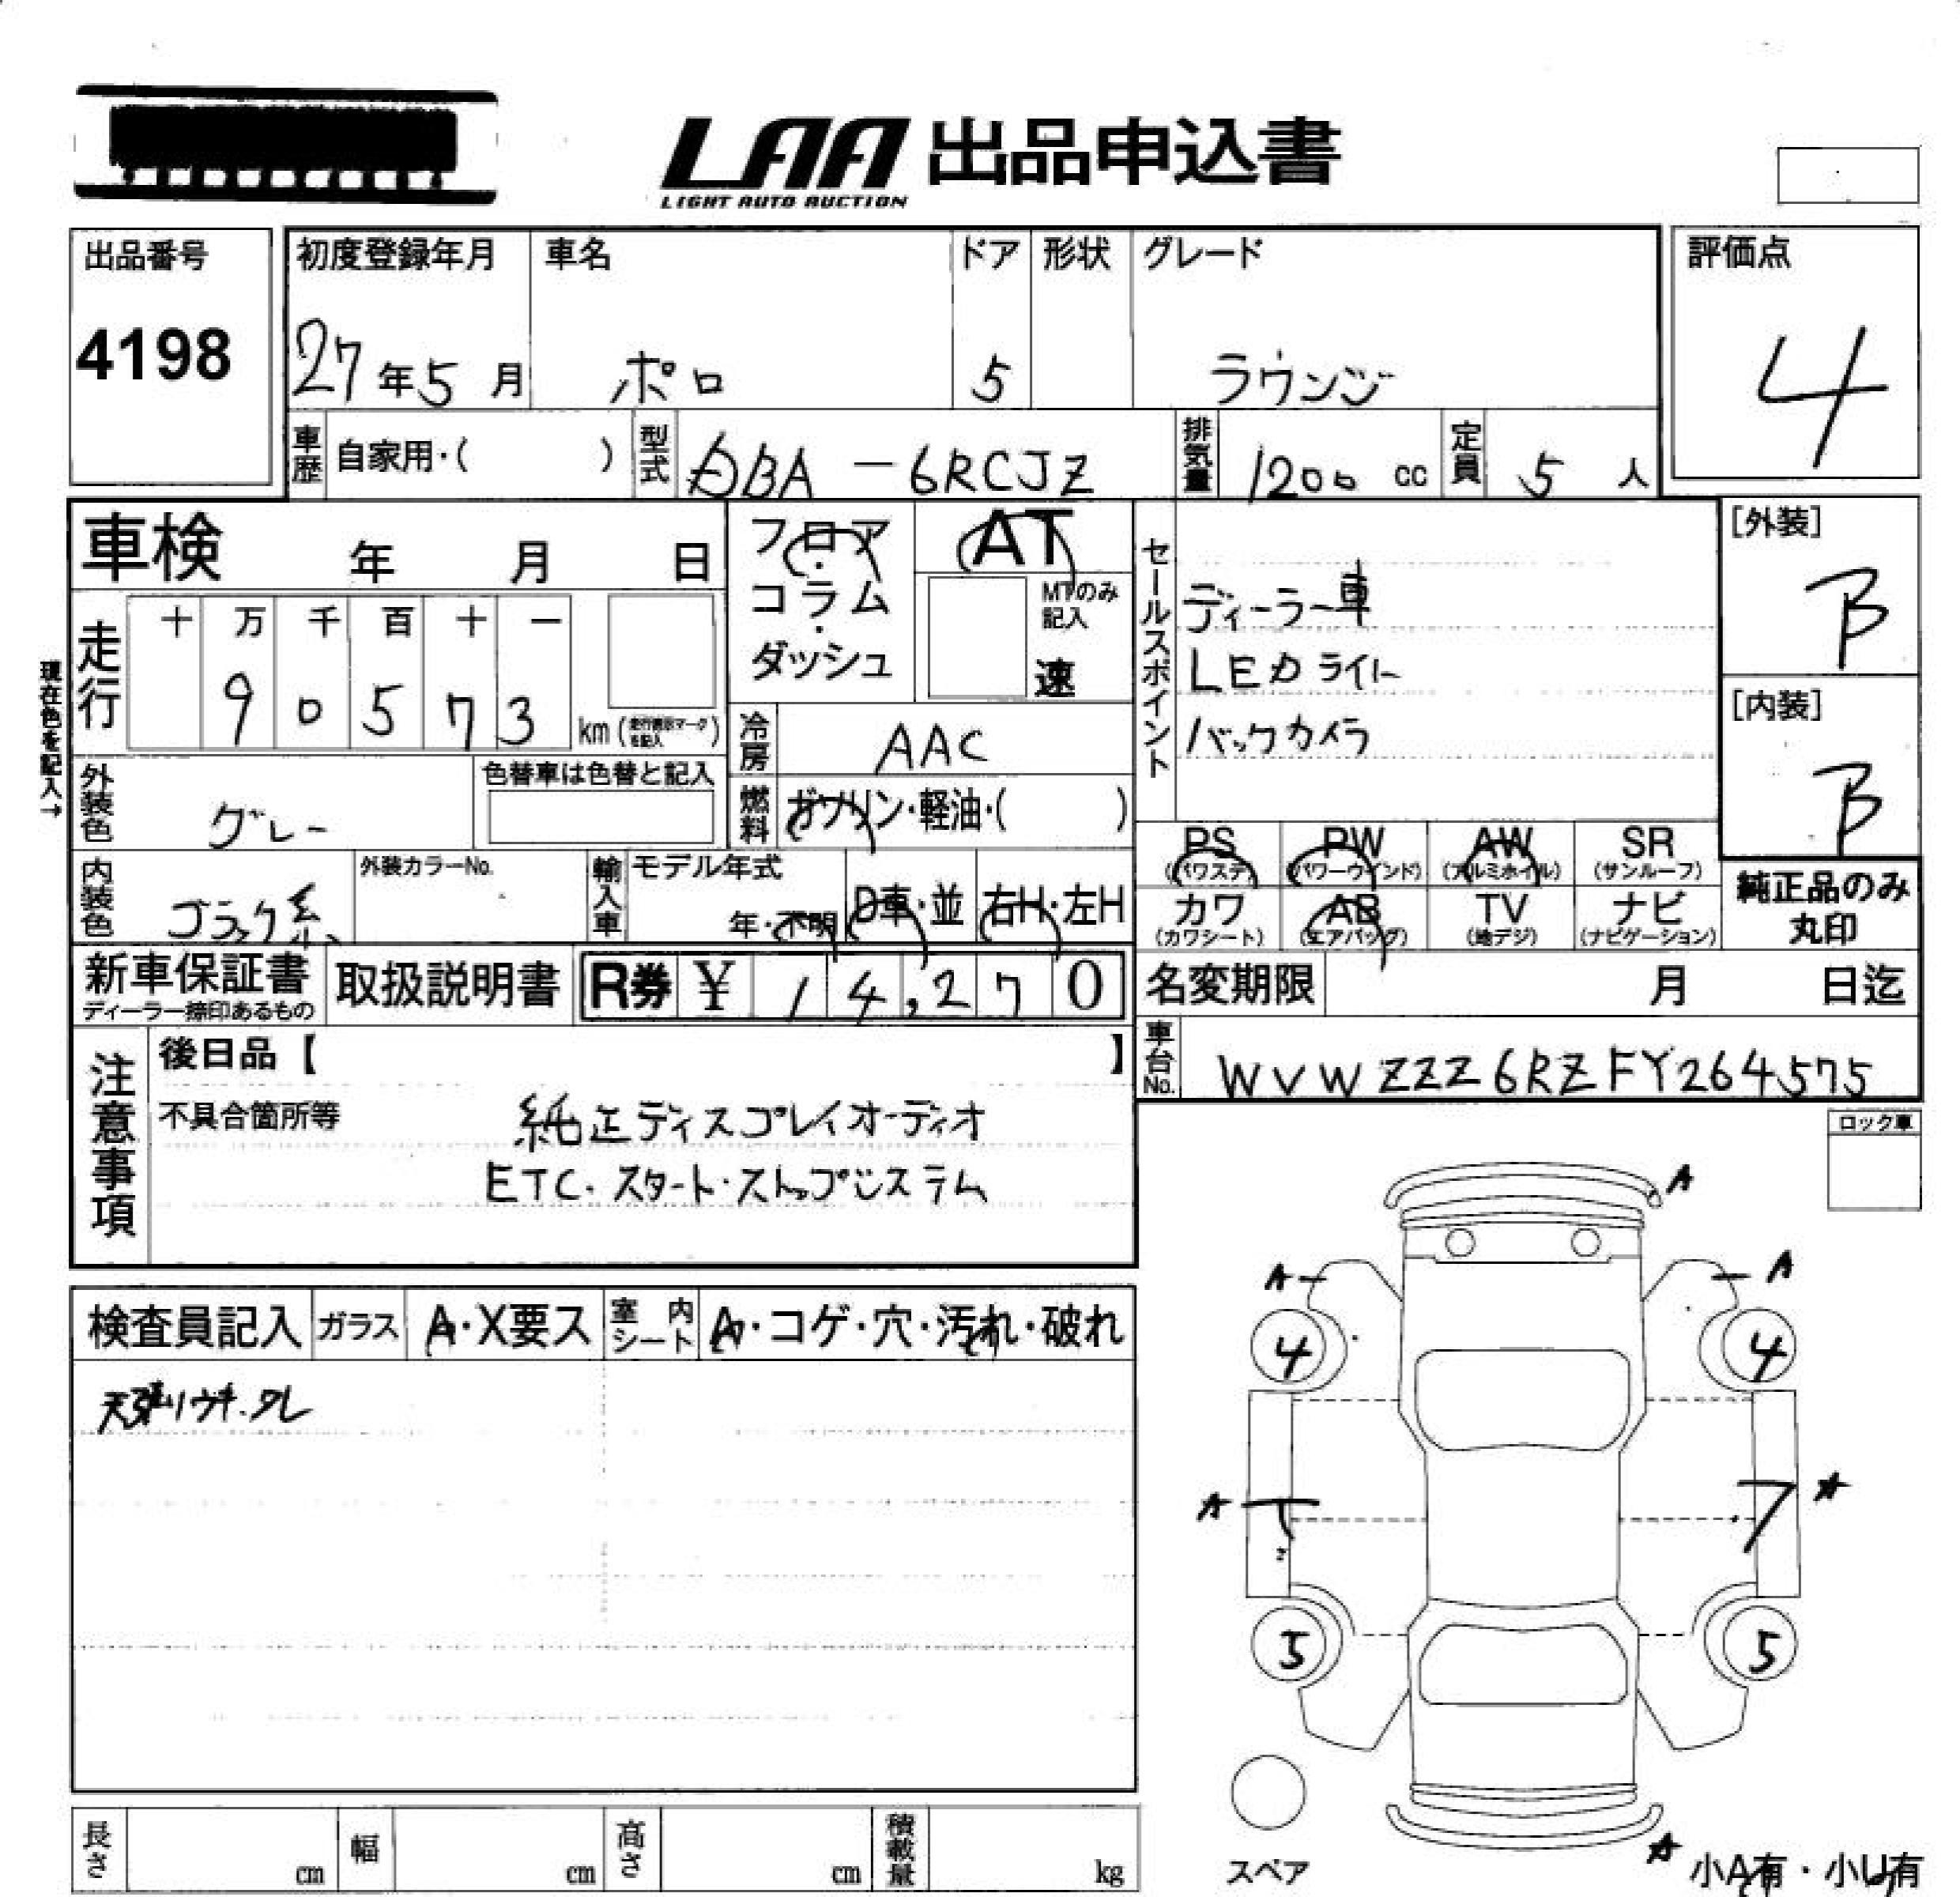 LAA 出品申込書
LIGHT AUTO AUCTION
出品番号
4198
初度登録年月
27年5月
車名
ポロ
ドア
5
形状
グレード
ラウンジ
評価点
4
車歴 自家用・( )
型式 DBA-6RCJZ
排気量 1200 cc
定員 5 人
車検 年 月 日
フロア・コラム・ダッシュ
AT
MTのみ記入
速
セールスポイント
ディーラー車
LEDライト
バックカメラ
[外装]
B
[内装]
B
現在色を記入→
走行
十 万 千 百 十 一
9 0 5 7 3
km (走行表示マークを記入)
冷房 AAC
燃料 ガソリン・軽油・( )
外装色 グレー
色替車は色替と記入
内装色 ブラック系
外装カラーNo.
輸入車
モデル年式
年・不明
D車・並
右H・左H
PS (パワステ)
PW (パワーウインド)
AW (アルミホイル)
SR (サンルーフ)
カワ (カワシート)
AB (エアバッグ)
TV (地デジ)
ナビ (ナビゲーション)
純正品のみ丸印
新車保証書
ディーラー捺印あるもの
取扱説明書
R券 ¥ 14,270
名変期限 月 日迄
車台No. WVWZZZ6RZFY264575
注意事項
後日品【 】
不具合箇所等
純正ディスプレイオーディオ
ETC・スタート・ストップシステム
ロック車
検査員記入
ガラス A・X要ス
室内シート A・コゲ・穴・汚れ・破れ
天張りウキ.タレ
A
A
A
4
4
A
A
5
5
スペア
A
小A有・小U有
長さ cm
幅 cm
高さ cm
積載量 kg